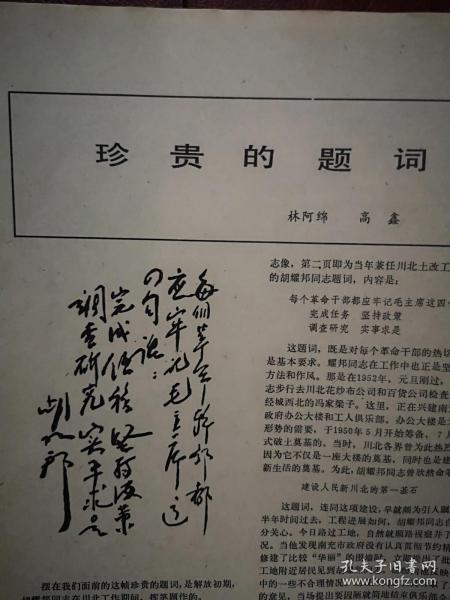 珍贵的题词
林阿绵 高鑫
每个革命干部都
应牢记毛主席这
四句话：
完成任务 坚持政策
调查研究 实事求是
胡耀邦
摆在我们面前的这帧珍贵的题词，是解放初期，
胡耀邦同志在川北工作期间，挥笔题作的。
志像，第二页即为当年兼任川北土改工
的胡耀邦同志题词，内容是：
每个革命干部都应牢记毛主席这四
完成任务 坚持政策
调查研究 实事求是
这题词，既是对每个革命干部的热切
是基本要求。耀邦同志在工作中也正是坚
方法和作风。那是在1952年，元旦刚过，
志步行去川北花纱布公司和百货公司检查
经城西北的冯家梁子。这里，正在兴建南
政府办公大楼和工人俱乐部。办公大楼是
形势的需要，于1950年5月开始筹备，7月
式破土奠基的。当时，川北各界曾为此热烈
因为它不仅是一座大楼的奠基，同时也是建
新生活的奠基。为此，胡耀邦同志曾欣然命笔
建设人民新川北的第一基石
这题词，连同这项建设，早就颇为引人瞩
半年时间过去，工程进展如何，胡耀邦同志自
分关心。今日路过工地，自然就顺路视察并了
况。当他发现南充市政府没有认真贯彻节约精
修建了比较“华丽”的围墙时，立即提出了批
工地附近居民见到
中的一些不合理情
的意见，当场提出要因陋就简地结束俱乐部全
孔夫子旧书网